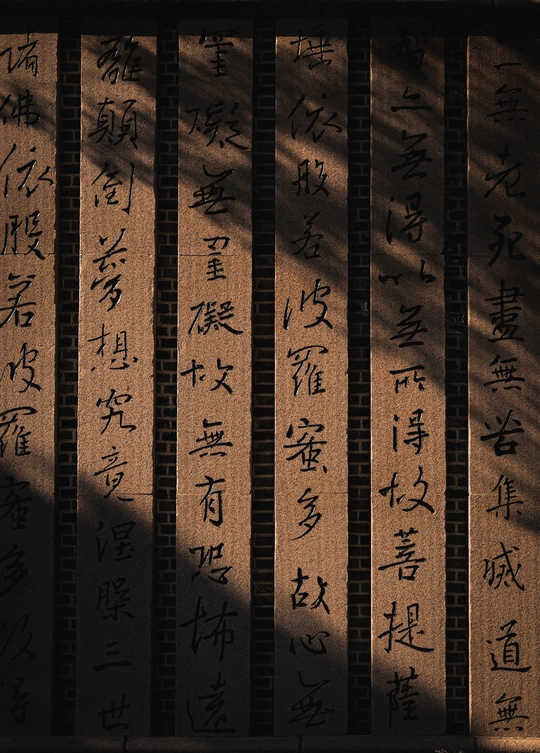 亦無老死盡無苦集滅道無
智亦無得以無所得故菩提薩
埵依般若波羅蜜多故心無
罣礙無罣礙故無有恐怖遠
離顛倒夢想究竟涅槃三世
諸佛依般若波羅蜜多故得